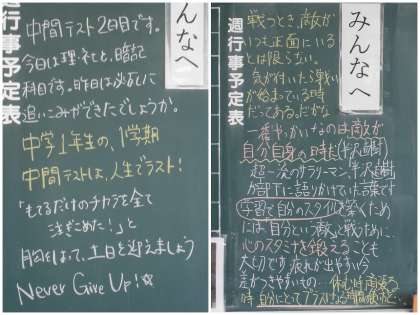 みんなへ
週行事予定表
中間テスト2日目です。
今日は理・社と、暗記
科目です。昨日は必死に
追いこみができたでしょうか。
中学1年生の、1学期
中間テストは、人生でラスト!
「もてるだけのチカラを全て
注ぎこめた!」と
胸をはって、土日を迎えましょう
Never Give Up!☆
みんなへ
週行事予定表
戦うとき、敵が
いつも正面にいる
とは限らない。
気が付いたら戦い
が始まっている時
だってある。だがな
一番やっかいなのは敵が
自分自身の時だ(半沢直樹)
超一流のサラリーマン、半沢直樹
が部下に語りかけていた言葉です
学習で自分のスタイルを築くため
には自分という敵と戦うために、
心のスタミナを鍛えることも
大切です。疲れが出やすい今
差がつきやすいもの…休む時、頑張る
時